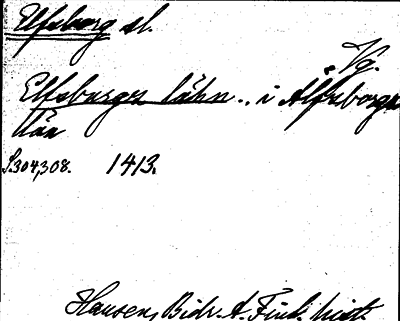 Elfsborg sl.
Vg.
Elfsburger lähn.. i Älfsborgs
län
S.304,308. 1413.
Hausen, Bidr. t. Finl. hist.